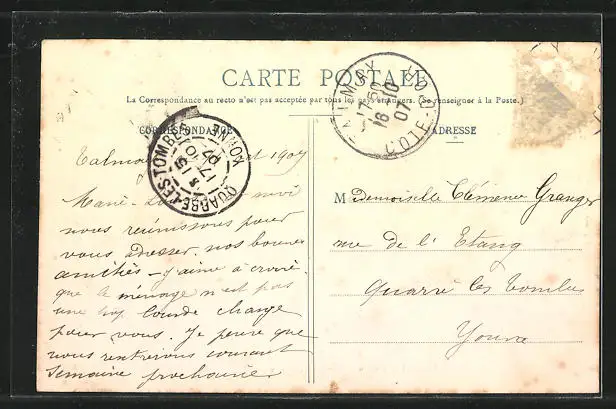 CARTE POSTALE
La Correspondance au recto n'est pas acceptée par tous les pays étrangers. (Se renseigner à la Poste.)
CORRESPONDANCE
ADRESSE
17 50
16 -10
07
COTE-D'OR
QUARRE-LES-TOMBES
YONNE
17 -10
07
1907
nous réunissons pour
vous adresser nos bonnes
amitiés - j'aime à croire
que le ménage n'est pas
une trop lourde charge
pour vous. Je pense que
nous rentrerons courant
semaine prochaine
Mademoiselle Clémence Granger
rue de l'Etang
Quarré les tombes
Yonne